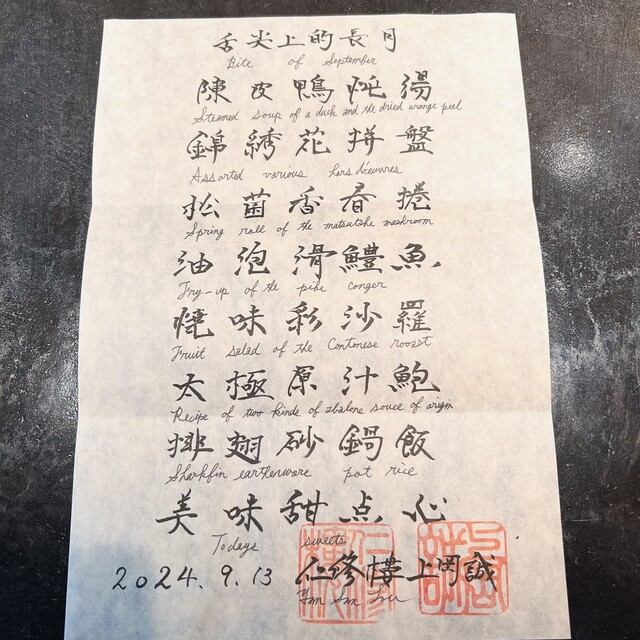 舌尖上的長月
Bite of September
陳皮鴨炖湯
Steamed soup of a duck and the dried orange peel
錦綉花拼盤
Assorted various hors d'oeuvres
松菌香春捲
Spring roll of the matsutake mashroom
油泡滑鱧魚
Fry-up of the pike conger
燒味彩沙羅
Fruit salad of the Contonese rooast
太極原汁鮑
Recipe of two kinds of abalone souce of origin
排翅砂鍋飯
Sharkfin earthenware pot rice
美味甜点心
Todays sweets
2024.9.13 仁修樓上岡誠